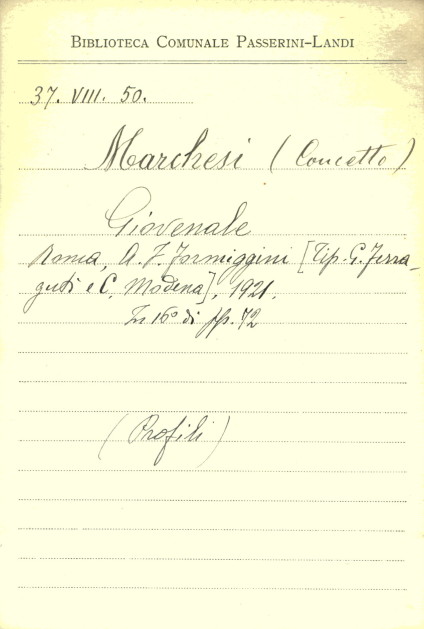 BIBLIOTECA COMUNALE PASSERINI-LANDI
37. VIII. 50.
Marchesi (Concetto)
Giovenale
Roma, A. F. Formiggini [Tip. G. Ferra-
guti e C. Modena], 1921.
In 16° di pp. 72
(Profili)